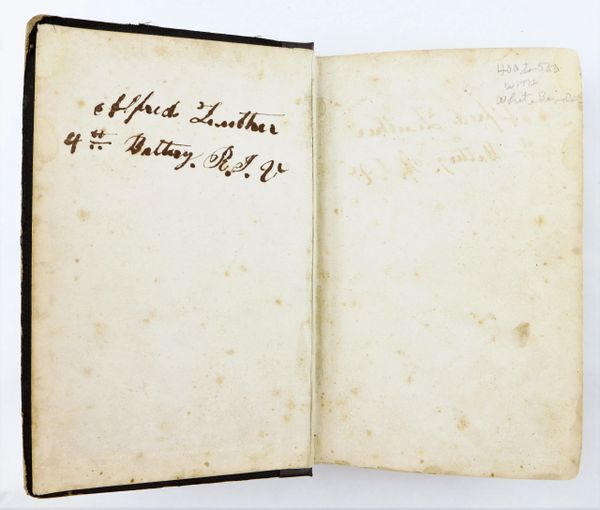 Alfred Luther
4th Battery. R. I. V
400 to 500
WITH
White Binder